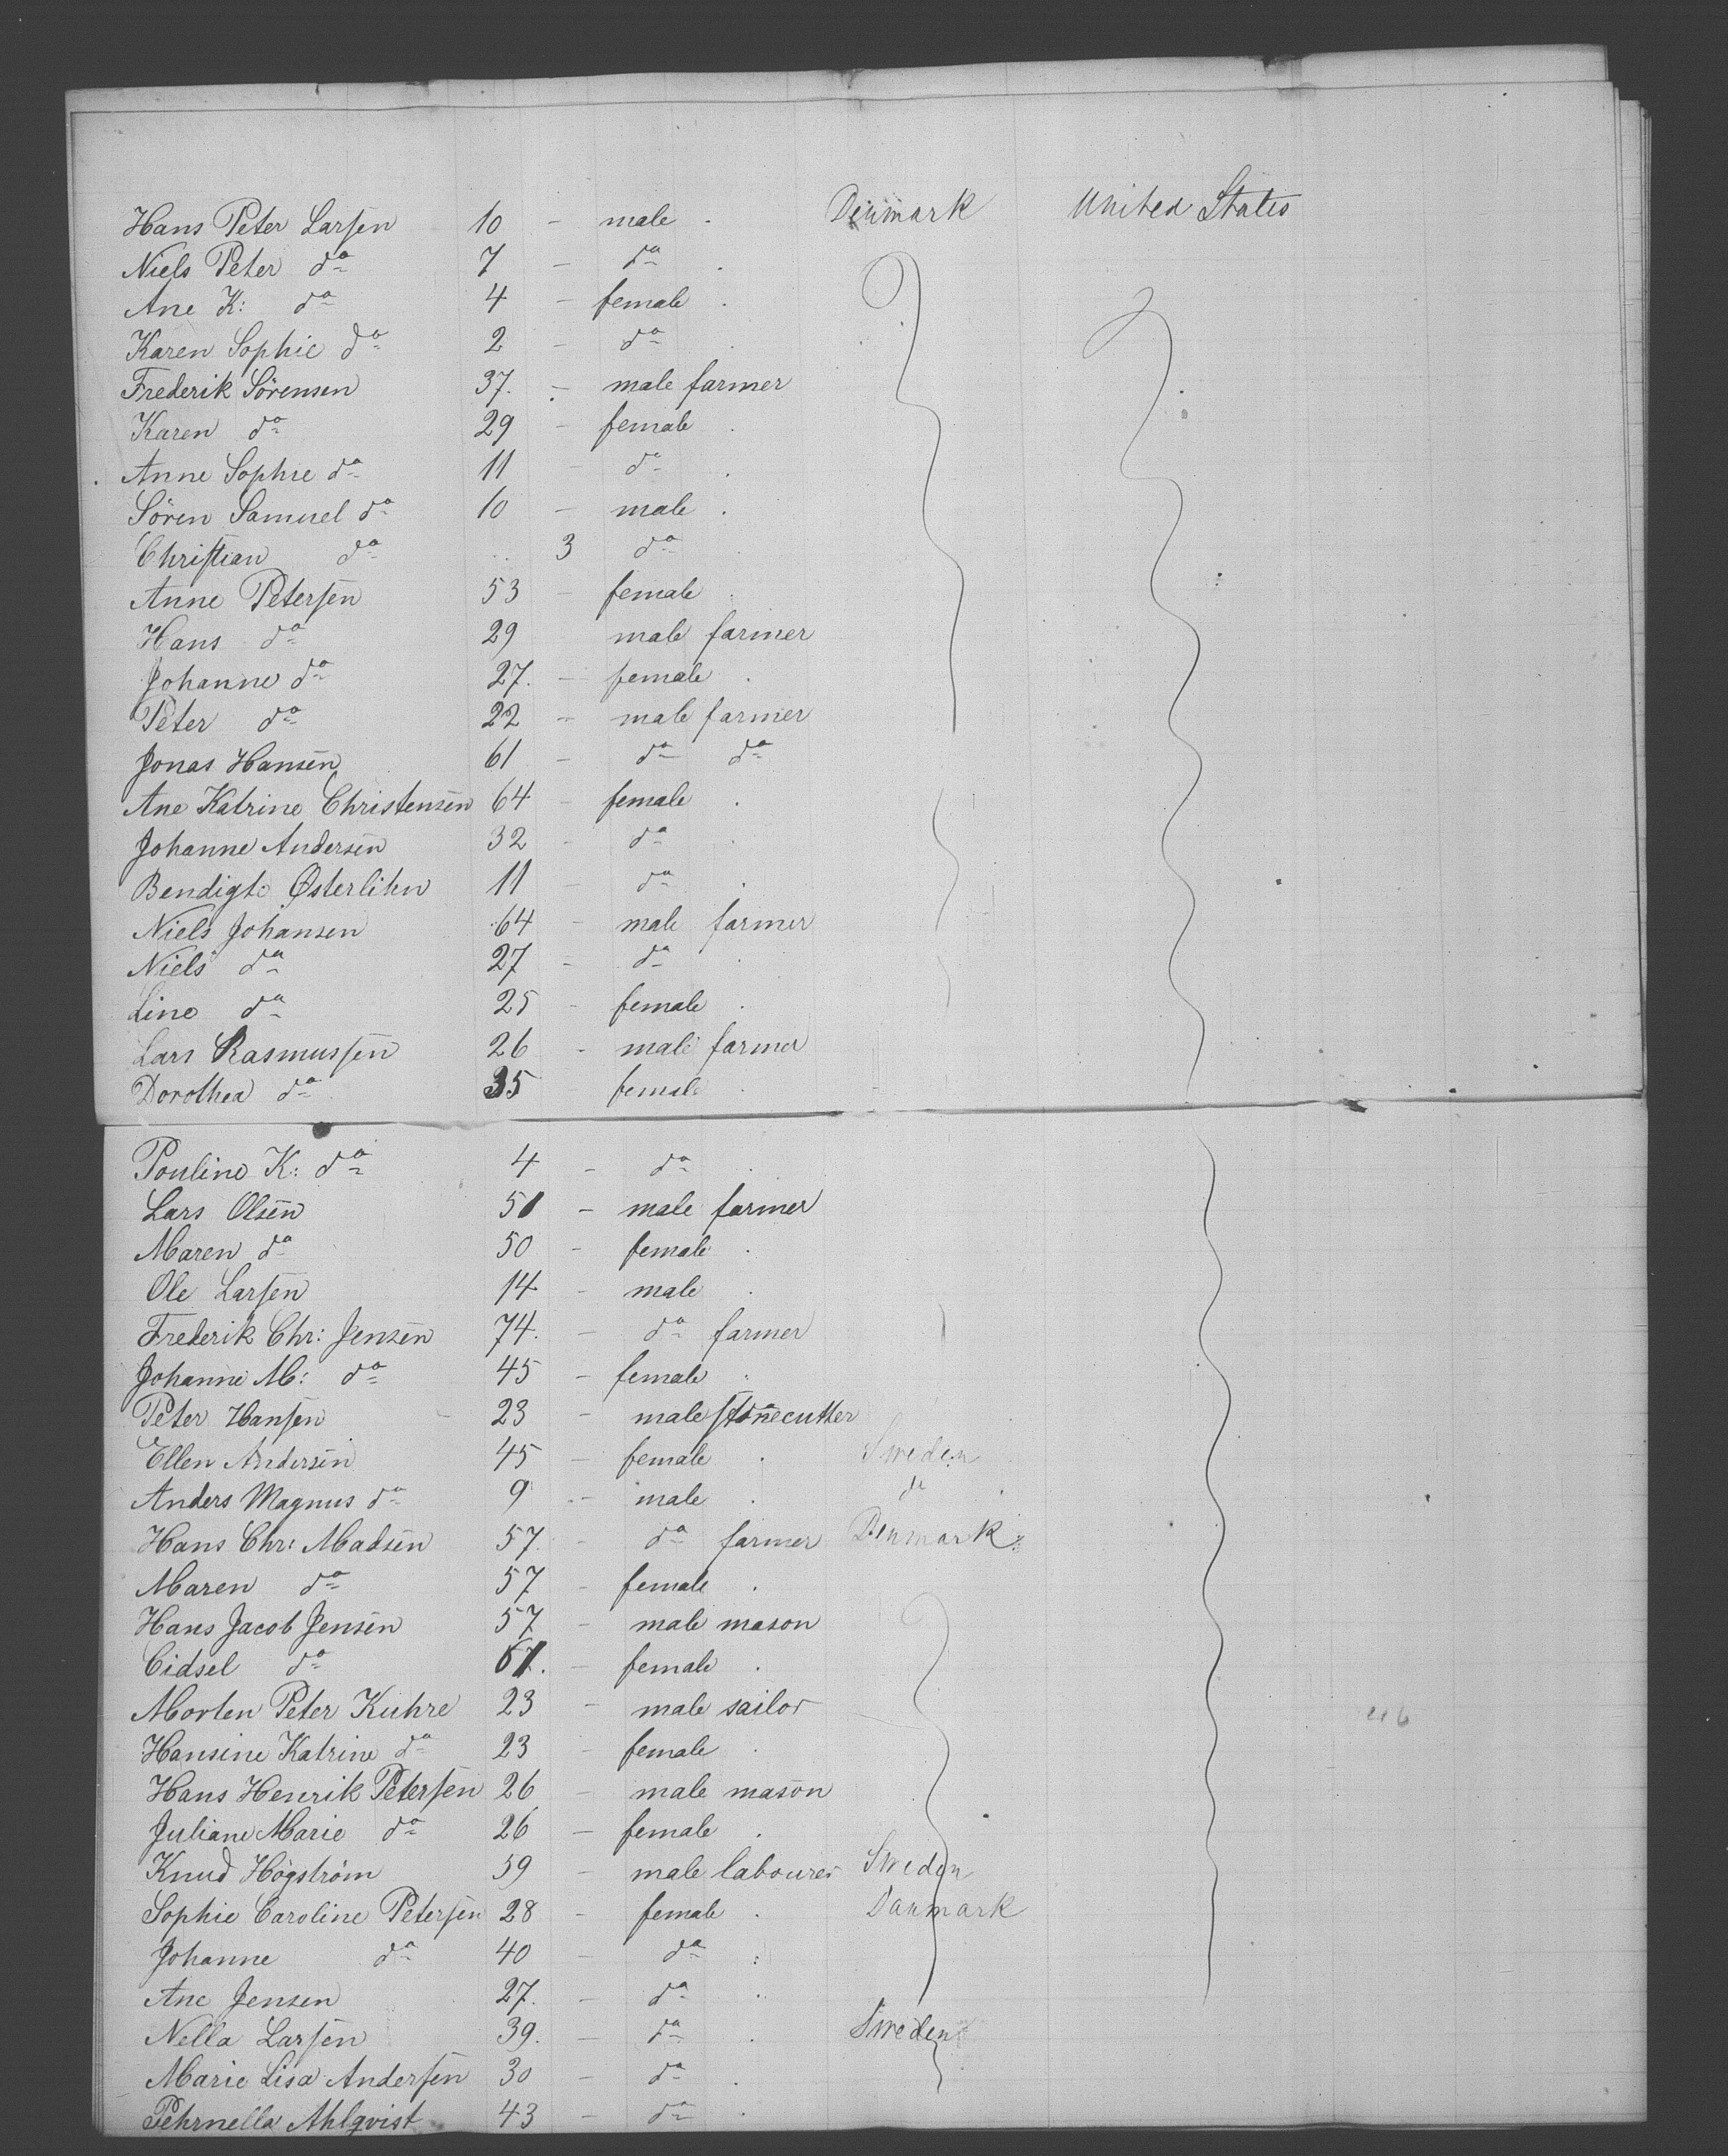 Hans Peter Larsen 10 - male . Denmark United States
Niels Peter do 7 - do .
Ane K: do 4 - female .
Karen Sophie do 2 - do .
Frederik Sörensen 37. - male farmer
Karen do 29 - female .
Anne Sophie do 11 - do .
Sören Samuel do 10 - male .
Christian do 3 do
Anne Petersen 53 - female .
Hans do 29 male farmer
Johanne do 27. - female .
Peter do 22 - male farmer
Jonas Hansen 61 - do do
Ane Katrine Christensen 64 - female .
Johanne Andersen 32 - do .
Bendigte Østerlihn 11 - do .
Niels Johansen 64 - male farmer
Niels do 27 - do .
Line do 25 - female .
Lars Rasmussen 26 - male farmer
Dorothea do 35 female .
Pouline K: do 4 - do .
Lars Olsen 51 - male farmer
Maren do 50 - female .
Ole Larsen 14 - male .
Frederik Chr: Jensen 74. - do farmer
Johanne M: do 45 - female .
Peter Hansen 23 - male stonecutter
Ellen Andersen 45 - female . Sweden
Anders Magnus do 9 - male . do
Hans Chr: Madsen 57. - do farmer Denmark
Maren do 57 - female .
Hans Jacob Jensen 57 - male mason
Cidsel do 61. - female .
Morten Peter Kuhre 23 - male sailor
Hansine Katrine do 23 - female .
Hans Henrik Petersen 26 - male mason
Juliane Marie do 26 - female .
Knud Högström 59 - male labourer Sweden
Sophie Caroline Petersen 28 - female . Danmark
Johanne do 40 - do .
Ane Jensen 27. - do .
Nella Larsen 39. - do . Sweden
Marie Lisa Andersen 30 - do .
Pehrnella Ahlqvist 43 - do .